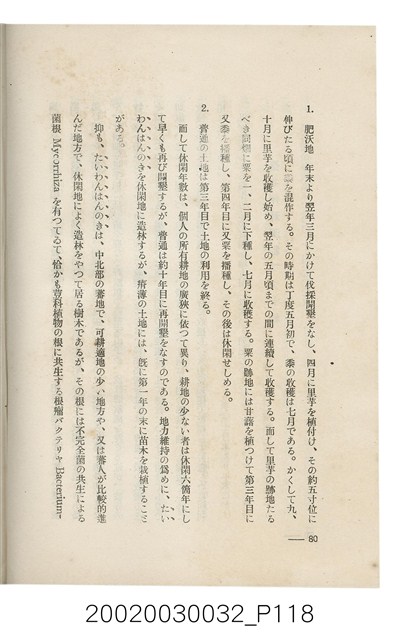 1. 肥沃地　年末より翌年三月にかけて伐採開墾をなし、四月に里芋を植付け、その約五寸位に
伸びたる頃に黍を混作する。その時期は丁度五月初で、黍の收穫は七月である。かくして九、
十月に里芋を收穫し始め、翌年の五月頃までの間に連續して收穫する。而して里芋の跡地たる
べき同畑に粟を一、二月に下種し、七月に收穫する。粟の跡地には甘藷を植つけて第三年目に
又黍を播種し、第四年目に又粟を播種し、その後は休閑せしめる。
2. 普通の土地は第三年目で土地の利用を終る。
而して休閑年數は、個人の所有耕地の廣狹に依つて異り、耕地の少ない者は休閑六箇年にし
て早くも再び開墾するが、普通は約十年目に再開墾をなすのである。地力維持の爲めに、たい
わんはんのきを休閑地に造林するが、瘠薄の土地には、既に第一年の末に苗木を栽植すること
がある。
抑も、たいわんはんのきは、中北部の蕃地で、可耕適地の少い地方や、又は蕃人が比較的進
んだ地方で、休閑地によく造林をやつて居る樹木であるが、その根には不完全菌の共生による
菌根 Mycorrhiza を有つてゐて、恰かも荳科植物の根に共生する根瘤バクテリヤ Bacterium-
80
20020030032_P118